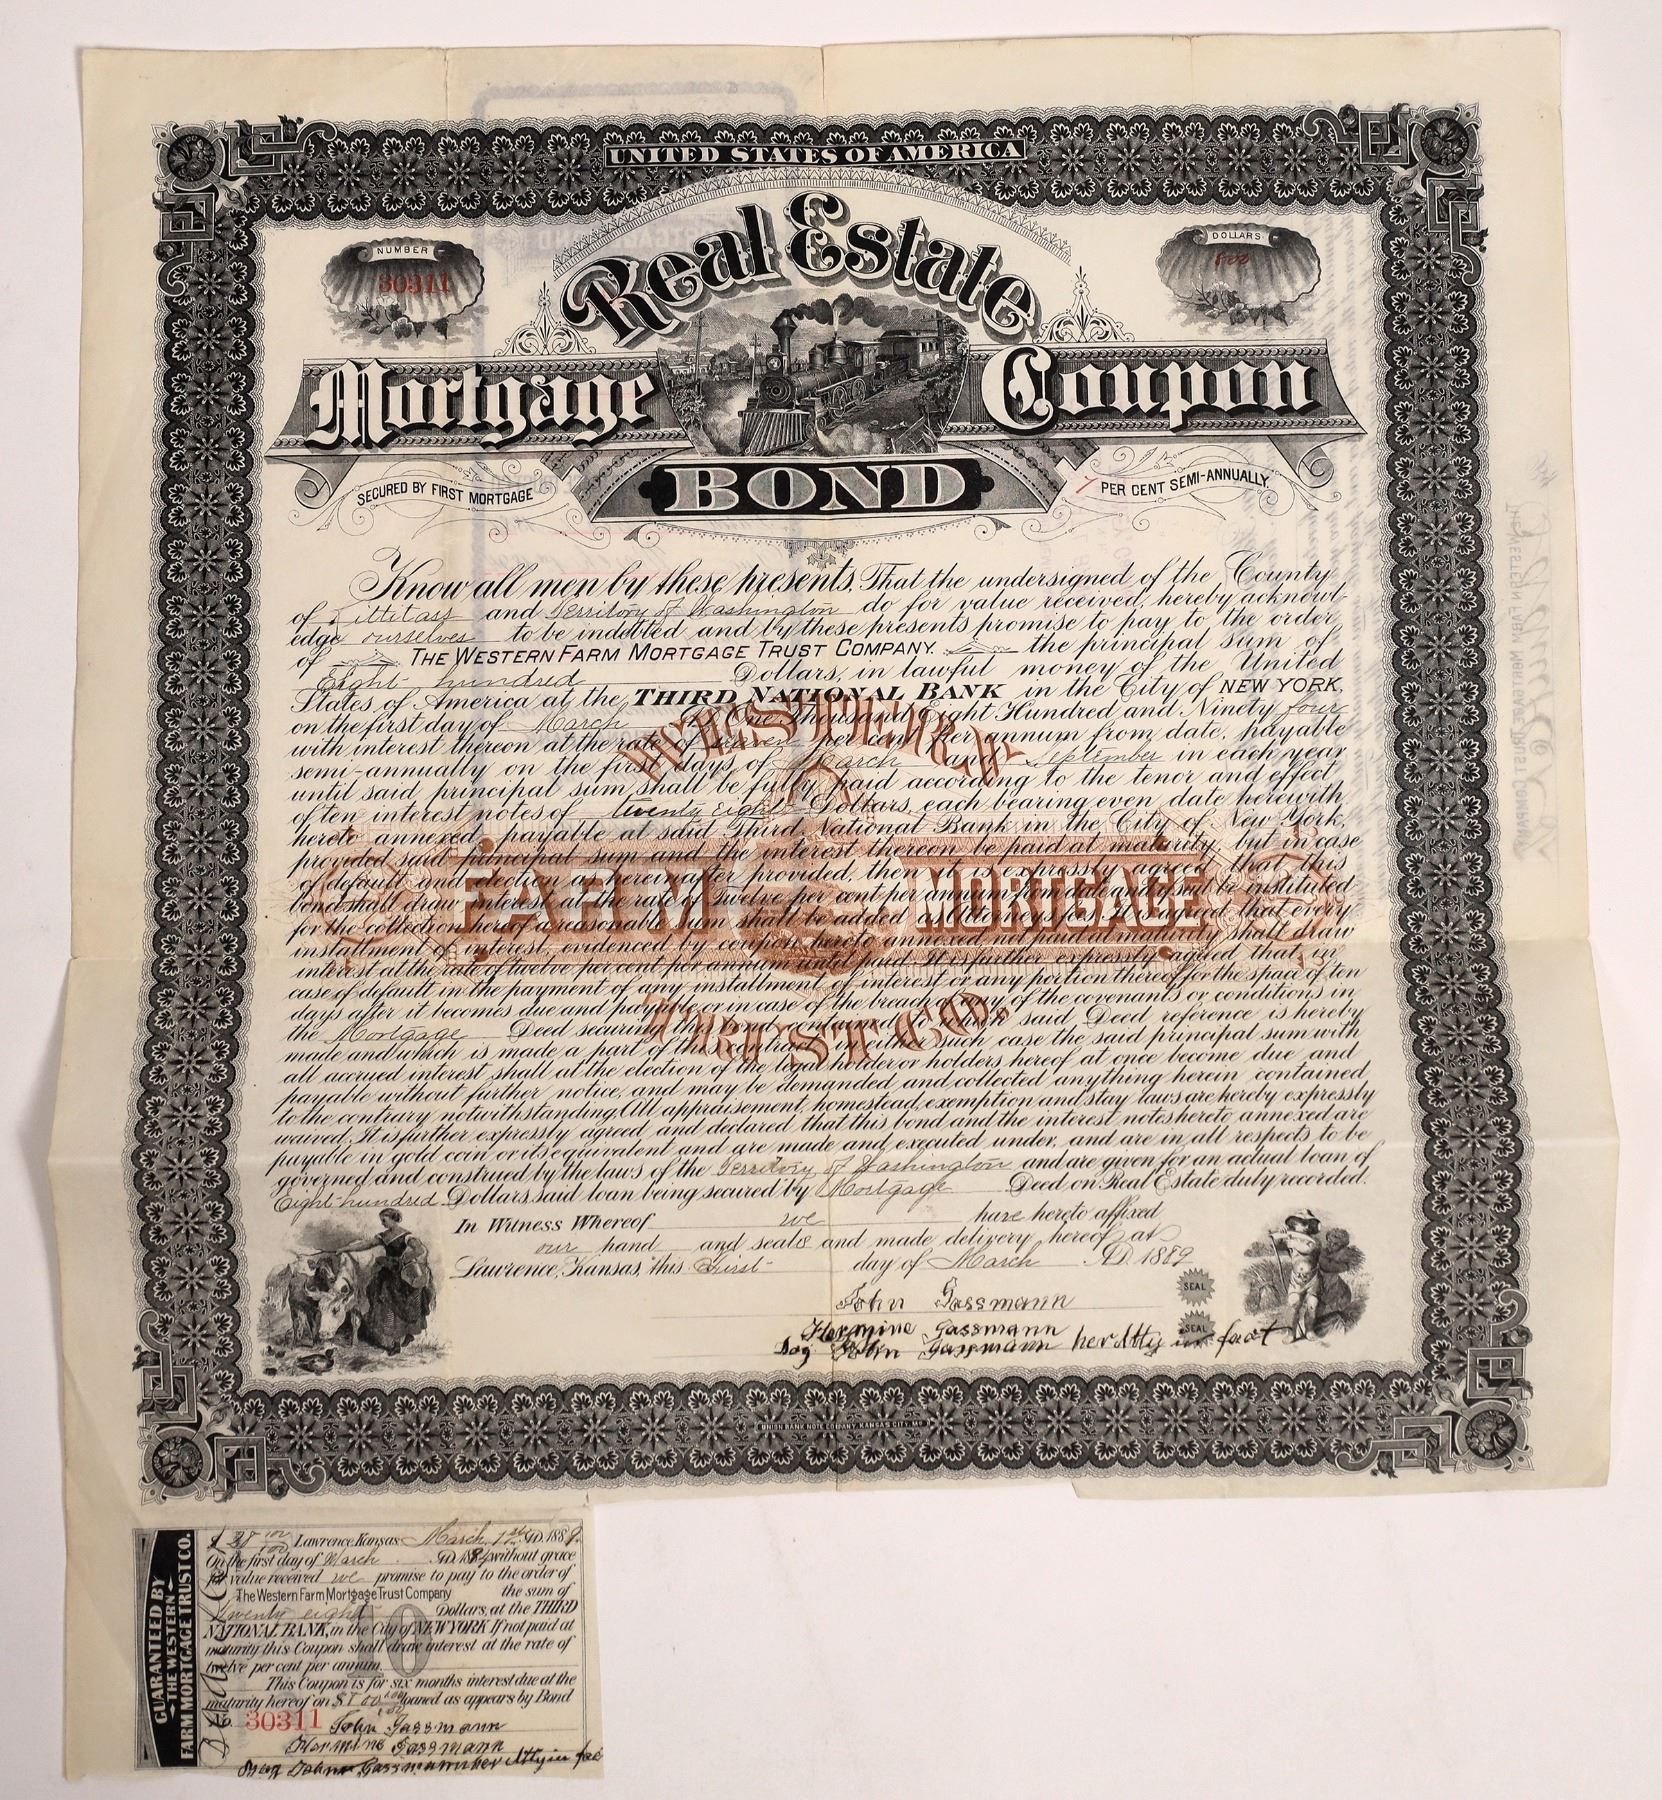 UNITED STATES OF AMERICA
NUMBER
30311
DOLLARS
800
Real Estate
Mortgage Coupon
BOND
SECURED BY FIRST MORTGAGE
7 PER CENT SEMI-ANNUALLY.
Know all men by these presents, That the undersigned of the County
of Kittitass and Territory of Washington do for value received, hereby acknowl-
edge ourselves to be indebted and by these presents promise to pay to the order
of THE WESTERN FARM MORTGAGE TRUST COMPANY. the principal sum of
Eight hundred Dollars, in lawful money of the United
States of America at the THIRD NATIONAL BANK in the City of NEW YORK,
on the first day of March A.D. One Thousand Eight Hundred and Ninety four
with interest thereon at the rate of seven per cent per annum from date, payable
semi-annually on the first days of March and September in each year
until said principal sum shall be fully paid according to the tenor and effect
of ten interest notes of twenty eight Dollars, each bearing even date herewith
hereto annexed, payable at said Third National Bank in the City of New York,
provided said principal sum and the interest thereon be paid at maturity, but in case
of default and election as hereinafter provided, then it is expressly agreed that this
bond shall draw interest at the rate of Twelve per cent per annum from date and if suit be instituted
for the collection hereof a reasonable sum shall be added as Attorneys fees. It is agreed that every
installment of interest, evidenced by coupon hereto annexed, not paid at maturity shall draw
interest at the rate of twelve per cent per annum until paid. It is further expressly agreed that in
case of default in the payment of any installment of interest or any portion thereof for the space of ten
days after it becomes due and payable, or in case of the breach of any of the covenants or conditions in
the Mortgage Deed securing this bond contained to which said Deed reference is hereby
made and which is made a part of this contract in either such case the said principal sum with
all accrued interest shall at the election of the legal holder or holders hereof at once become due and
payable without further notice, and may be demanded and collected anything herein contained
to the contrary notwithstanding. All appraisement, homestead, exemption and stay laws are hereby expressly
waived. It is further expressly agreed and declared that this bond and the interest notes hereto annexed are
payable in gold coin or its equivalent and are made and executed under, and are in all respects to be
governed and construed by the laws of the Territory of Washington and are given for an actual loan of
Eight hundred Dollars, said loan being secured by Mortgage Deed on Real Estate duly recorded.
THE WESTERN
FARM MORTGAGE
TRUST CO.
In Witness Whereof we have hereto affixed
our hand and seals and made delivery hereof at
Lawrence, Kansas, this First day of March A.D. 1889
John Gassmann
SEAL
Hermine Gassmann
SEAL
by John Gassmann her Atty in fact
UNION BANK NOTE COMPANY, KANSAS CITY, MO
GUARANTEED BY
THE WESTERN
FARM MORTGAGE TRUST CO.
$ 28 00/100 Lawrence, Kansas March 1st A.D. 1889.
On the first day of March A.D. 1894 without grace
for value received we promise to pay to the order of
The Western Farm Mortgage Trust Company the sum of
Twenty eight Dollars, at the THIRD
NATIONAL BANK, in the City of NEW YORK. If not paid at
maturity this Coupon shall draw interest at the rate of
twelve per cent per annum.
10
This Coupon is for six months interest due at the
maturity hereof on $800 00/100 loaned as appears by Bond
No. 30311 John Gassmann
Hermine Gassmann
by John Gassmann her Atty in fac